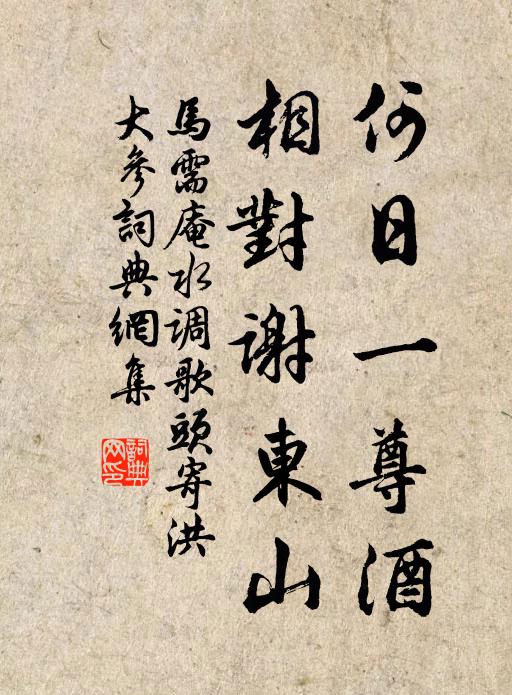 何日一尊酒
相對謝東山
馬需庵水调歌頭寄洪
大參詞典網集
詞典
网印